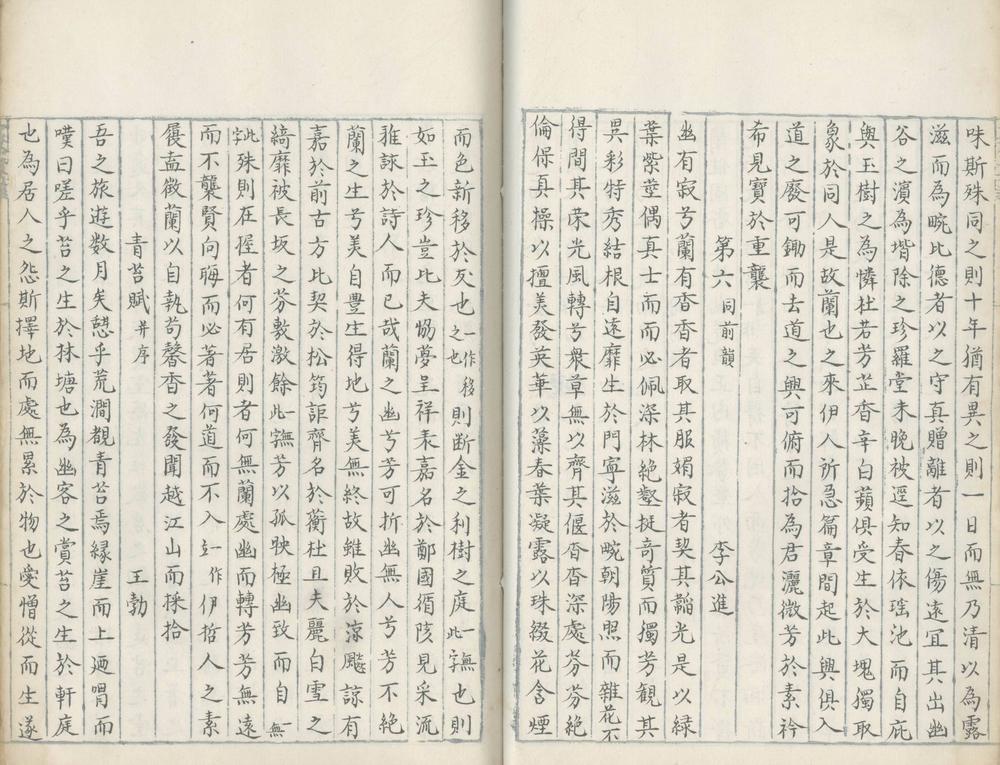 味斯殊同之則十年猶有異之則一日而無乃清以為露
滋而為畹比德者以之守真贈離者以之傷遠宜其出幽
谷之濵為堦除之珍羅堂未晚被逕知春依瑶池而自庇
與玉樹之為憐杜若芳芷香辛白蘋俱受生於大塊獨取
象於同人是故蘭也之來伊人所急篇章間起此興俱入
道之廢可鋤而去道之興可俯而拾為君灑微芳於素衿
希見寶於重襲
第六同前韻 李公進
幽有寂兮蘭有香香者取其服媚寂者契其韜光是以緑
葉紫莖偶真士而而必佩深林絶壑挺竒質而獨芳觀其
異彩特秀結根自遠靡生於門寧滋於畹朝陽照而雜花不
得間其榮光風轉兮衆草無以齊其偃杳杳深處芬芬絶
倫保真操以擅美發英華以藻春葉凝露以珠綴花含煙
而色新移於灾也一作移之也則断金之利樹之庭一無此字也則
如玉之珍豈比夫恊夢呈祥表嘉名於鄭國循陔見采流
雅詠於詩人而已哉蘭之幽兮芳可折幽無人兮芳不絶
蘭之生兮美自豊生得地兮美無終故雖敗於凉飈諒有
嘉於前古方比契於松筠詎齊名於蘅杜且夫麗白雪之
綺靡被長坂之芬敷激餘此憮芳以孤映極幽致而自一無
此字殊則在握者何有居則者何無蘭處幽而轉芳芳無遠
而不襲賢向晦而必著著何道而不入一作立伊哲人之素
履盍徵蘭以自執苟馨香之發聞越江山而採拾
青苔賦并序 王勃
吾之旅遊数月矣憇乎荒澗覩青苔焉緣崖而上廼喟而
嘆曰嗟乎苔之生於林塘也為幽客之賞苔之生於軒庭
也為居人之怨斯擇地而處無累於物也愛憎從而生遂